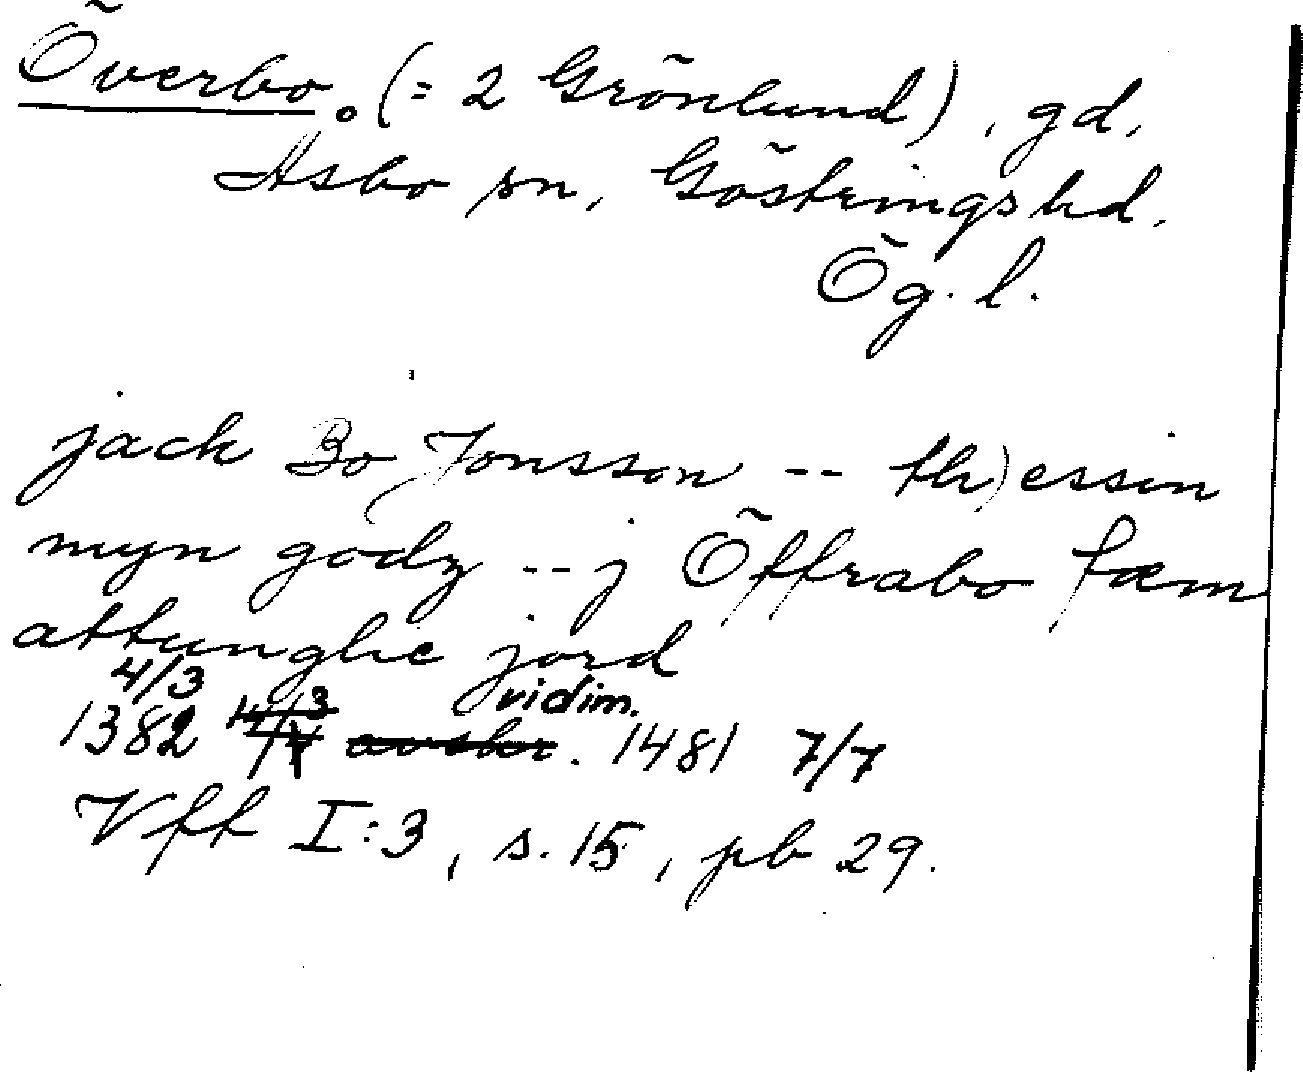 Överbo. (= 2 Grönlund), gd,
Åsbo sn, Göstringshd.
Ög. l.
jack Bo Jonsson -- th)essin
myn godz -- j Öffrabo fæm
attunghe jord
4/3 vidim.
1382 1481 7/7
Vff I:3, s. 15, pb 29.